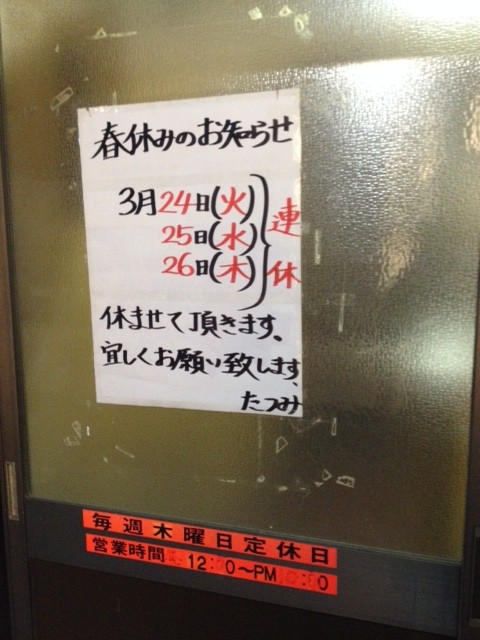 春休みのお知らせ
3月24日(火)
25日(水)
26日(木)
連休
休ませて頂きます。
宜しくお願い致します。
たつみ
毎週木曜日定休日
営業時間 12:00～PM